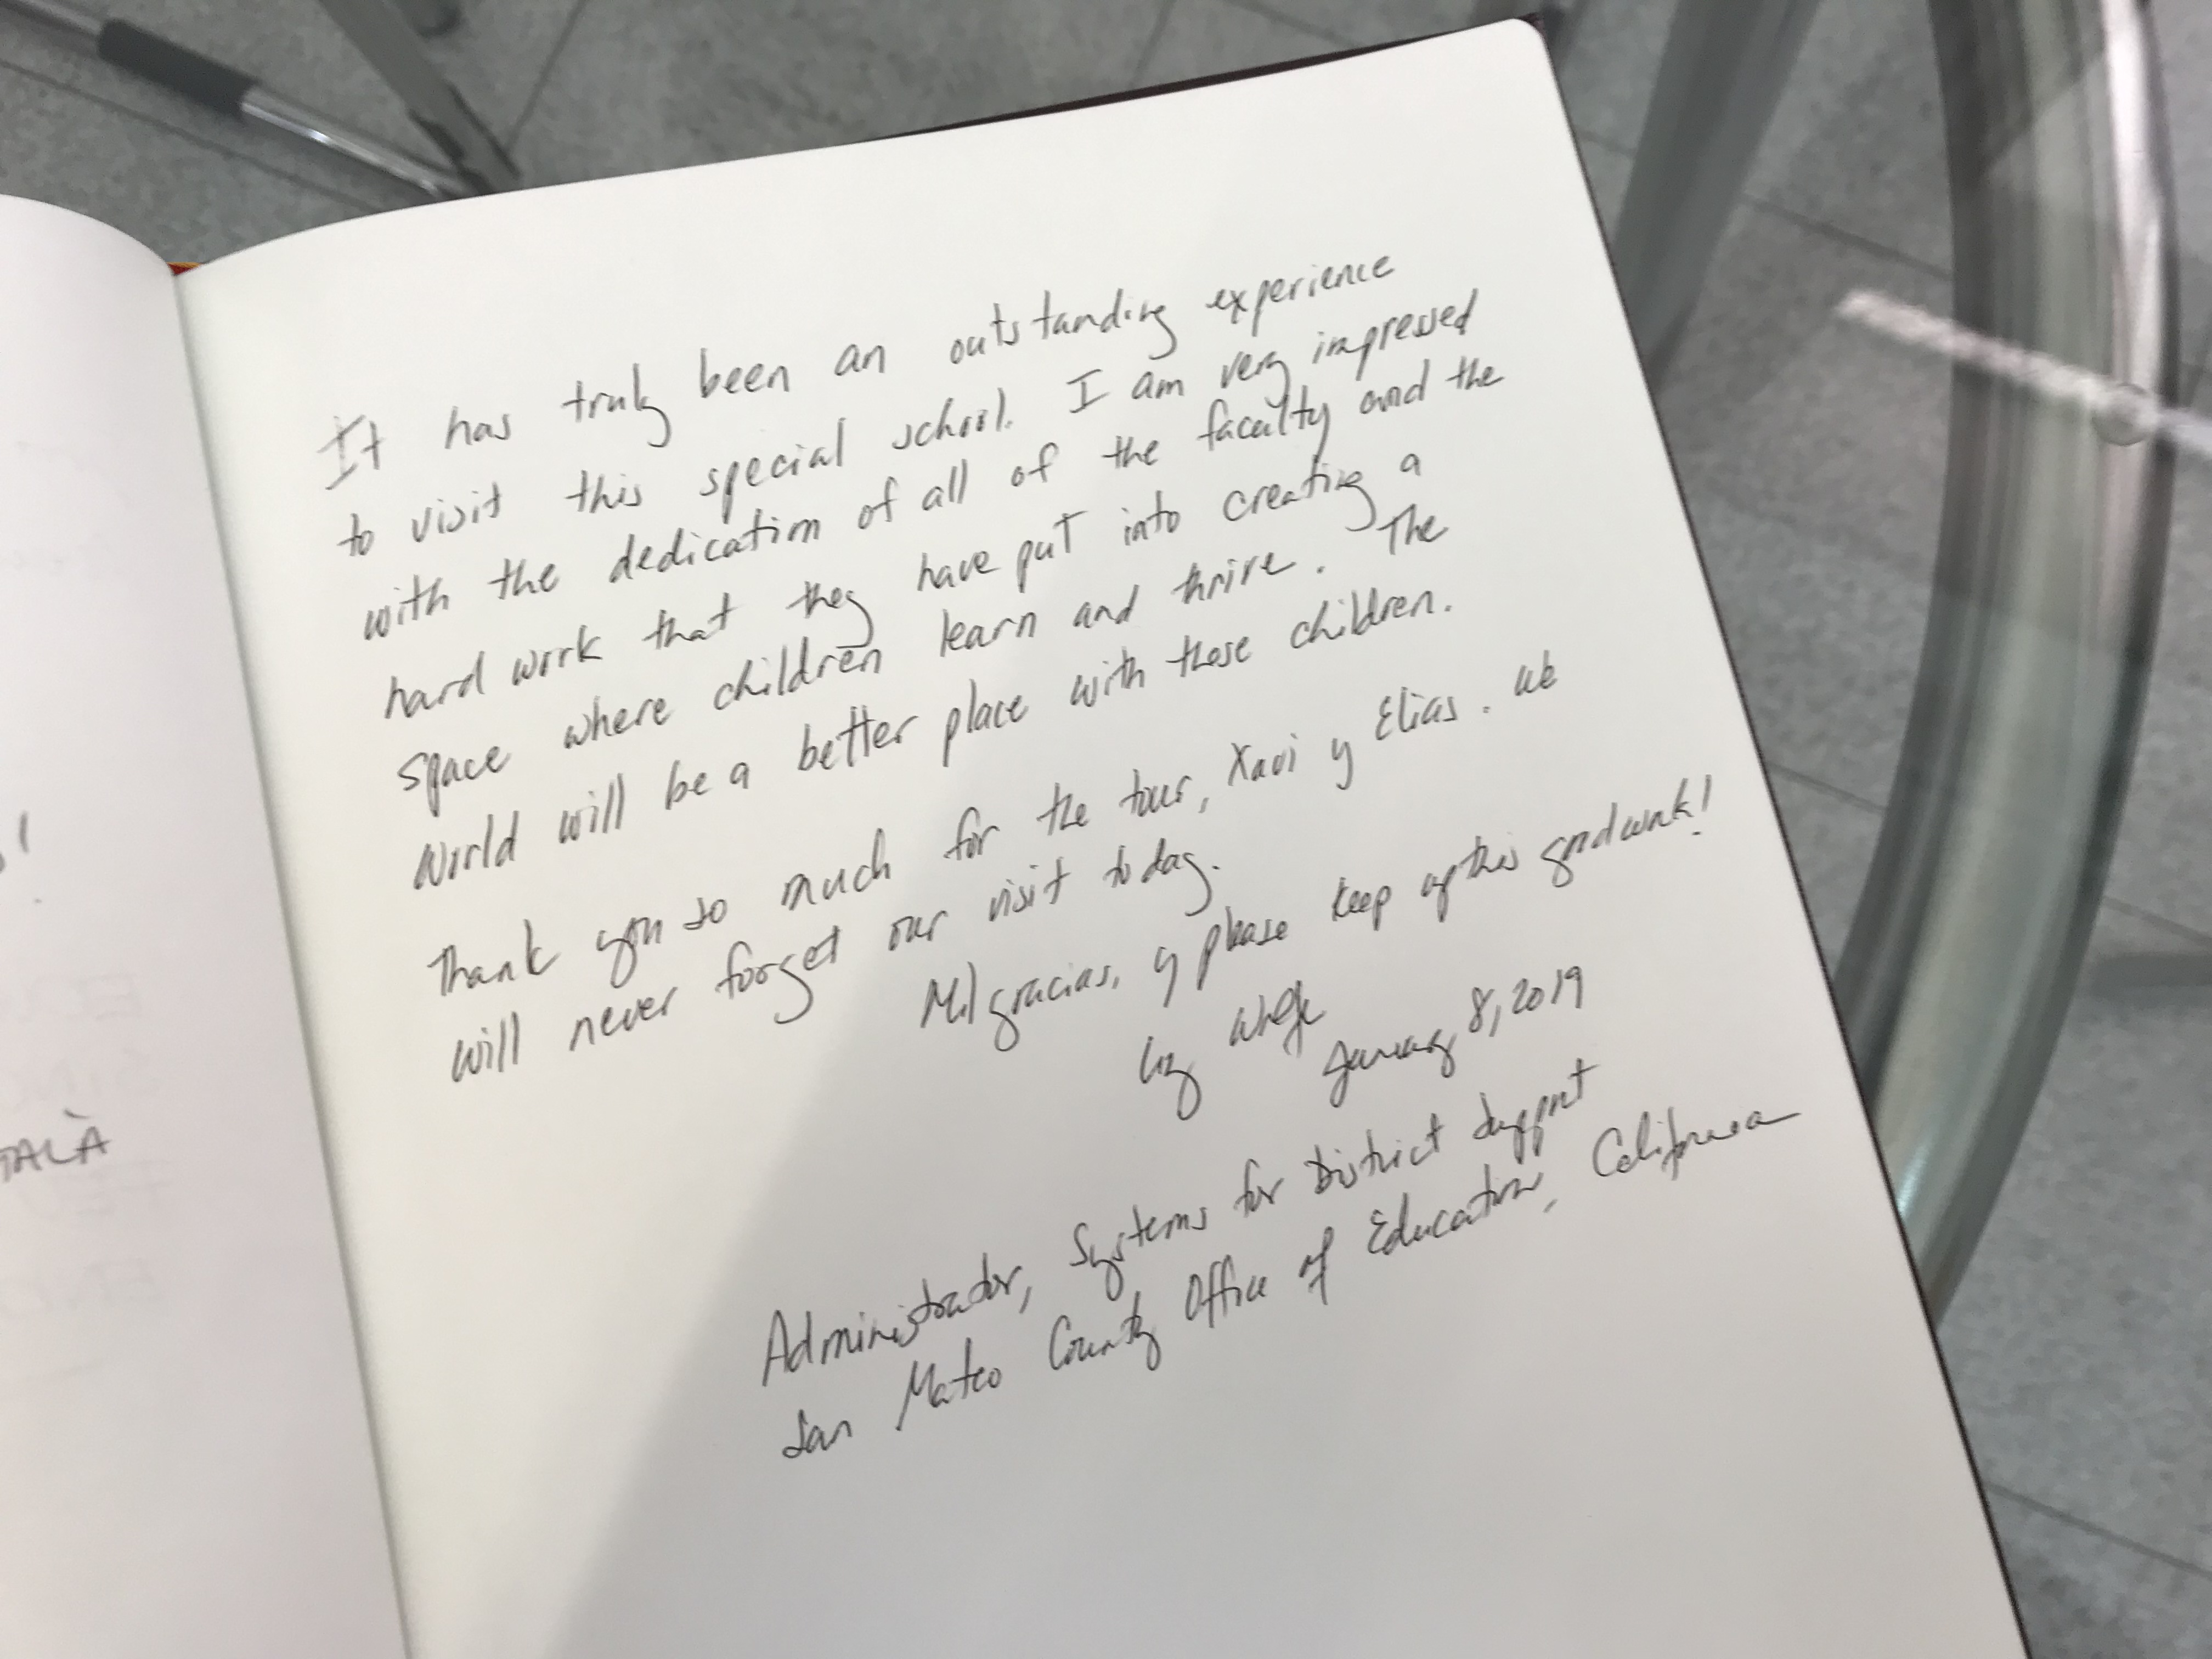 It has truly been an outstanding experience
to visit this special school. I am very impressed
with the dedication of all of the faculty and the
hard work that they have put into creating a
space where children learn and thrive. The
World will be a better place with these children.
Thank you so much for the tour, Xavi y Elias. We
will never forget our visit today.
Mil gracias, y please keep up this good work!
Liz
January 8, 2019
Administrador, Systems for District Support
San Mateo County Office of Education, California
TALÀ